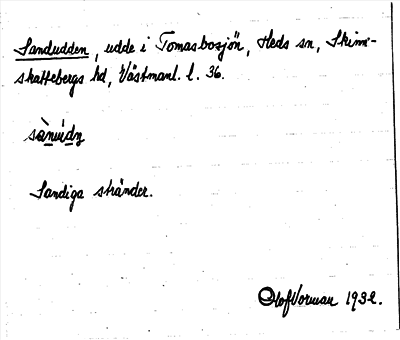 Sandudden, udde i Tomasbosjön, Heds sn, Skinn-
skattebergs hd, Västmanl. l. 36.
Sandiga stränder.
Olof Vorman 1932.